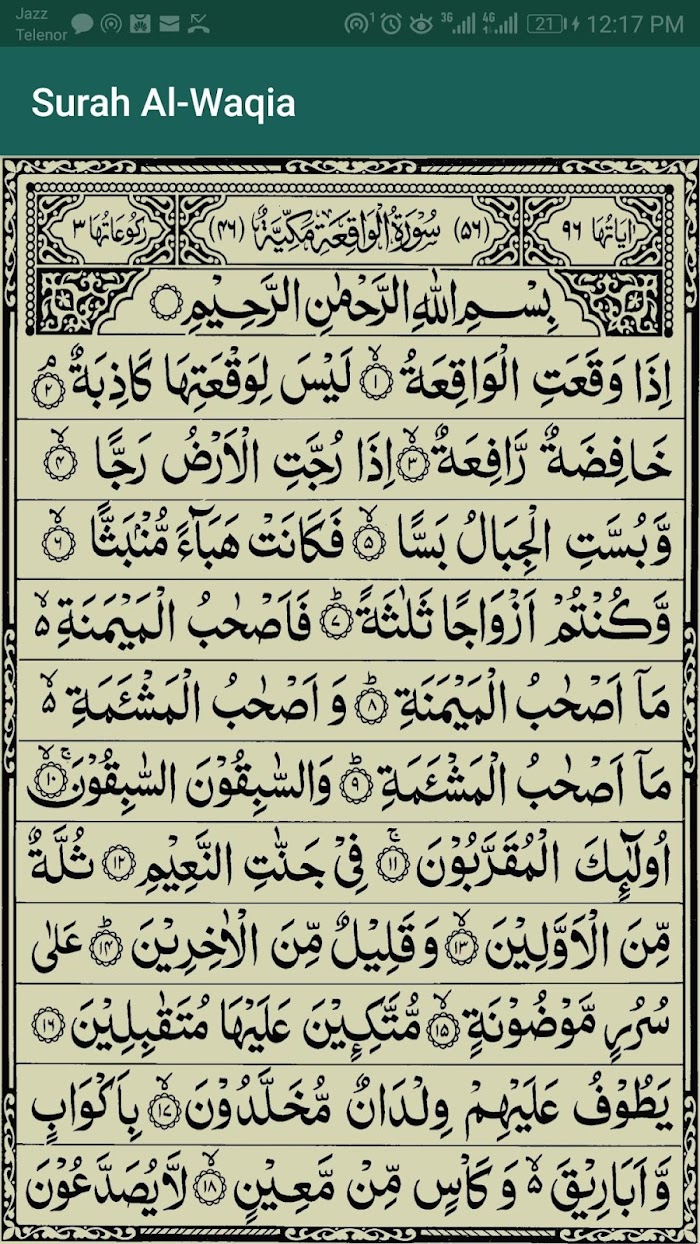 Jazz
Telenor
3G 4G 21 12:17 PM
Surah Al-Waqia
اٰيَاتُهَا ٩٦ (٥٦) سُوْرَةُ الْوَاقِعَةِ مَكِّيَّةٌ (٤٦) رُكُوْعَاتُهَا ٣
بِسْمِ اللّٰهِ الرَّحْمٰنِ الرَّحِيْمِ
اِذَا وَقَعَتِ الْوَاقِعَةُ ۙ﴿١﴾ لَيْسَ لِوَقْعَتِهَا كَاذِبَةٌ ۘ﴿٢﴾
خَافِضَةٌ رَّافِعَةٌ ۙ﴿٣﴾ اِذَا رُجَّتِ الْاَرْضُ رَجًّا ۙ﴿٤﴾
وَّبُسَّتِ الْجِبَالُ بَسًّا ۙ﴿٥﴾ فَكَانَتْ هَبَآءً مُّنْۢبَثًّا ۙ﴿٦﴾
وَّكُنْتُمْ اَزْوَاجًا ثَلٰثَةً ؕ﴿٧﴾ فَاَصْحٰبُ الْمَيْمَنَةِ ۙ۬
مَاۤ اَصْحٰبُ الْمَيْمَنَةِ ؕ﴿٨﴾ وَ اَصْحٰبُ الْمَشْـَٔمَةِ ۙ۬
مَاۤ اَصْحٰبُ الْمَشْـَٔمَةِ ؕ﴿٩﴾ وَالسّٰبِقُوْنَ السّٰبِقُوْنَ ۚۙ﴿١٠﴾
اُولٰٓئِكَ الْمُقَرَّبُوْنَ ۚ﴿١١﴾ فِيْ جَنّٰتِ النَّعِيْمِ ﴿١٢﴾ ثُلَّةٌ
مِّنَ الْاَوَّلِيْنَ ۙ﴿١٣﴾ وَ قَلِيْلٌ مِّنَ الْاٰخِرِيْنَ ؕ﴿١٤﴾ عَلٰى
سُرُرٍ مَّوْضُوْنَةٍ ۙ﴿١٥﴾ مُّتَّكِـِٕيْنَ عَلَيْهَا مُتَقٰبِلِيْنَ ﴿١٦﴾
يَطُوْفُ عَلَيْهِمْ وِلْدَانٌ مُّخَلَّدُوْنَ ۙ﴿١٧﴾ بِاَكْوَابٍ
وَّاَبَارِيْقَ ۙ۬ وَ كَاْسٍ مِّنْ مَّعِيْنٍ ۙ﴿١٨﴾ لَّا يُصَدَّعُوْنَ